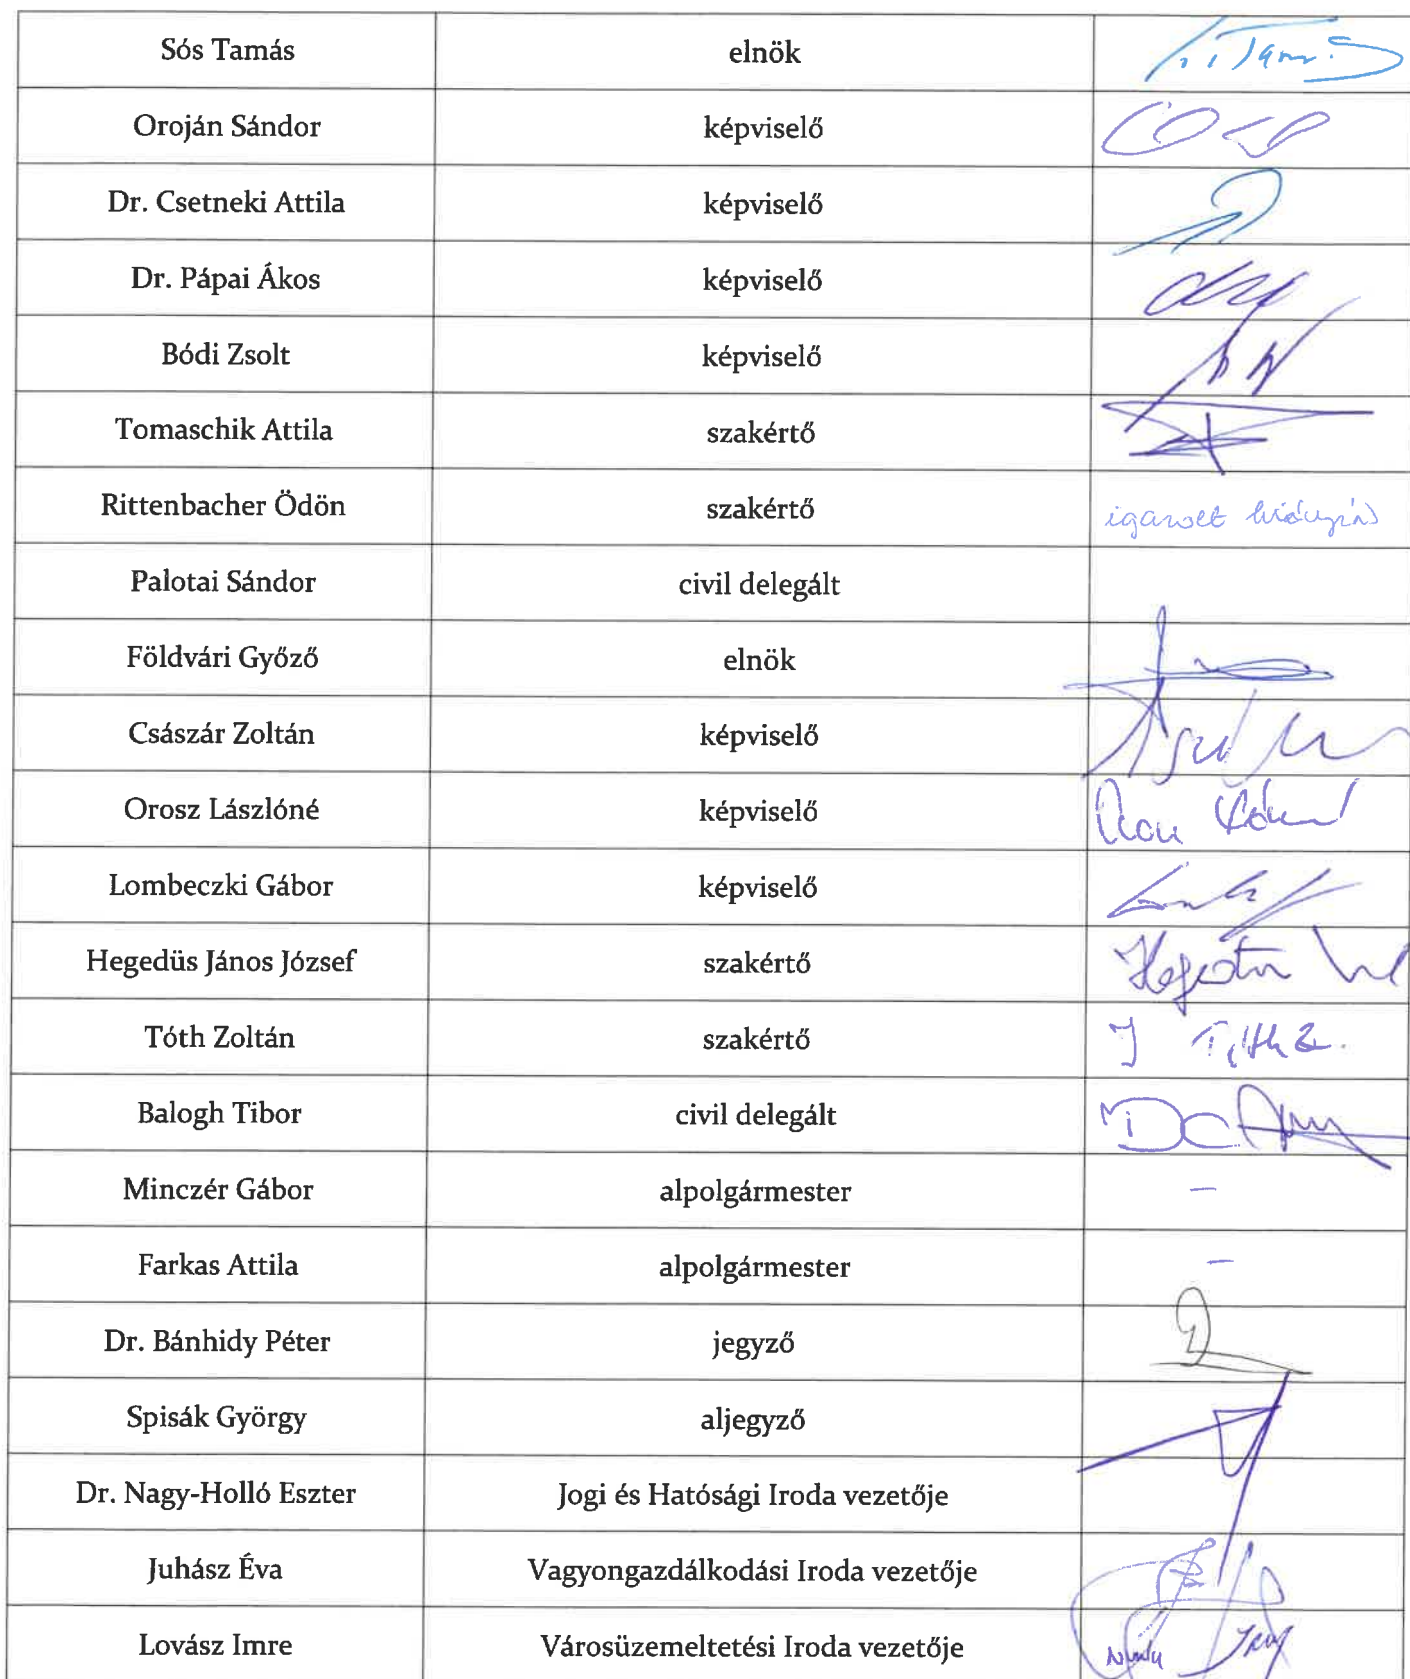 Sós Tamás elnök
Oroján Sándor képviselő
Dr. Csetneki Attila képviselő
Dr. Pápai Ákos képviselő
Bódi Zsolt képviselő
Tomaschik Attila szakértő
Rittenbacher Ödön szakértő igazolt hiányzás
Palotai Sándor civil delegált
Földvári Győző elnök
Császár Zoltán képviselő
Orosz Lászlóné képviselő
Lombeczki Gábor képviselő
Hegedüs János József szakértő
Tóth Zoltán szakértő
Balogh Tibor civil delegált
Minczér Gábor alpolgármester –
Farkas Attila alpolgármester –
Dr. Bánhidy Péter jegyző
Spisák György aljegyző
Dr. Nagy-Holló Eszter Jogi és Hatósági Iroda vezetője
Juhász Éva Vagyongazdálkodási Iroda vezetője
Lovász Imre Városüzemeltetési Iroda vezetője